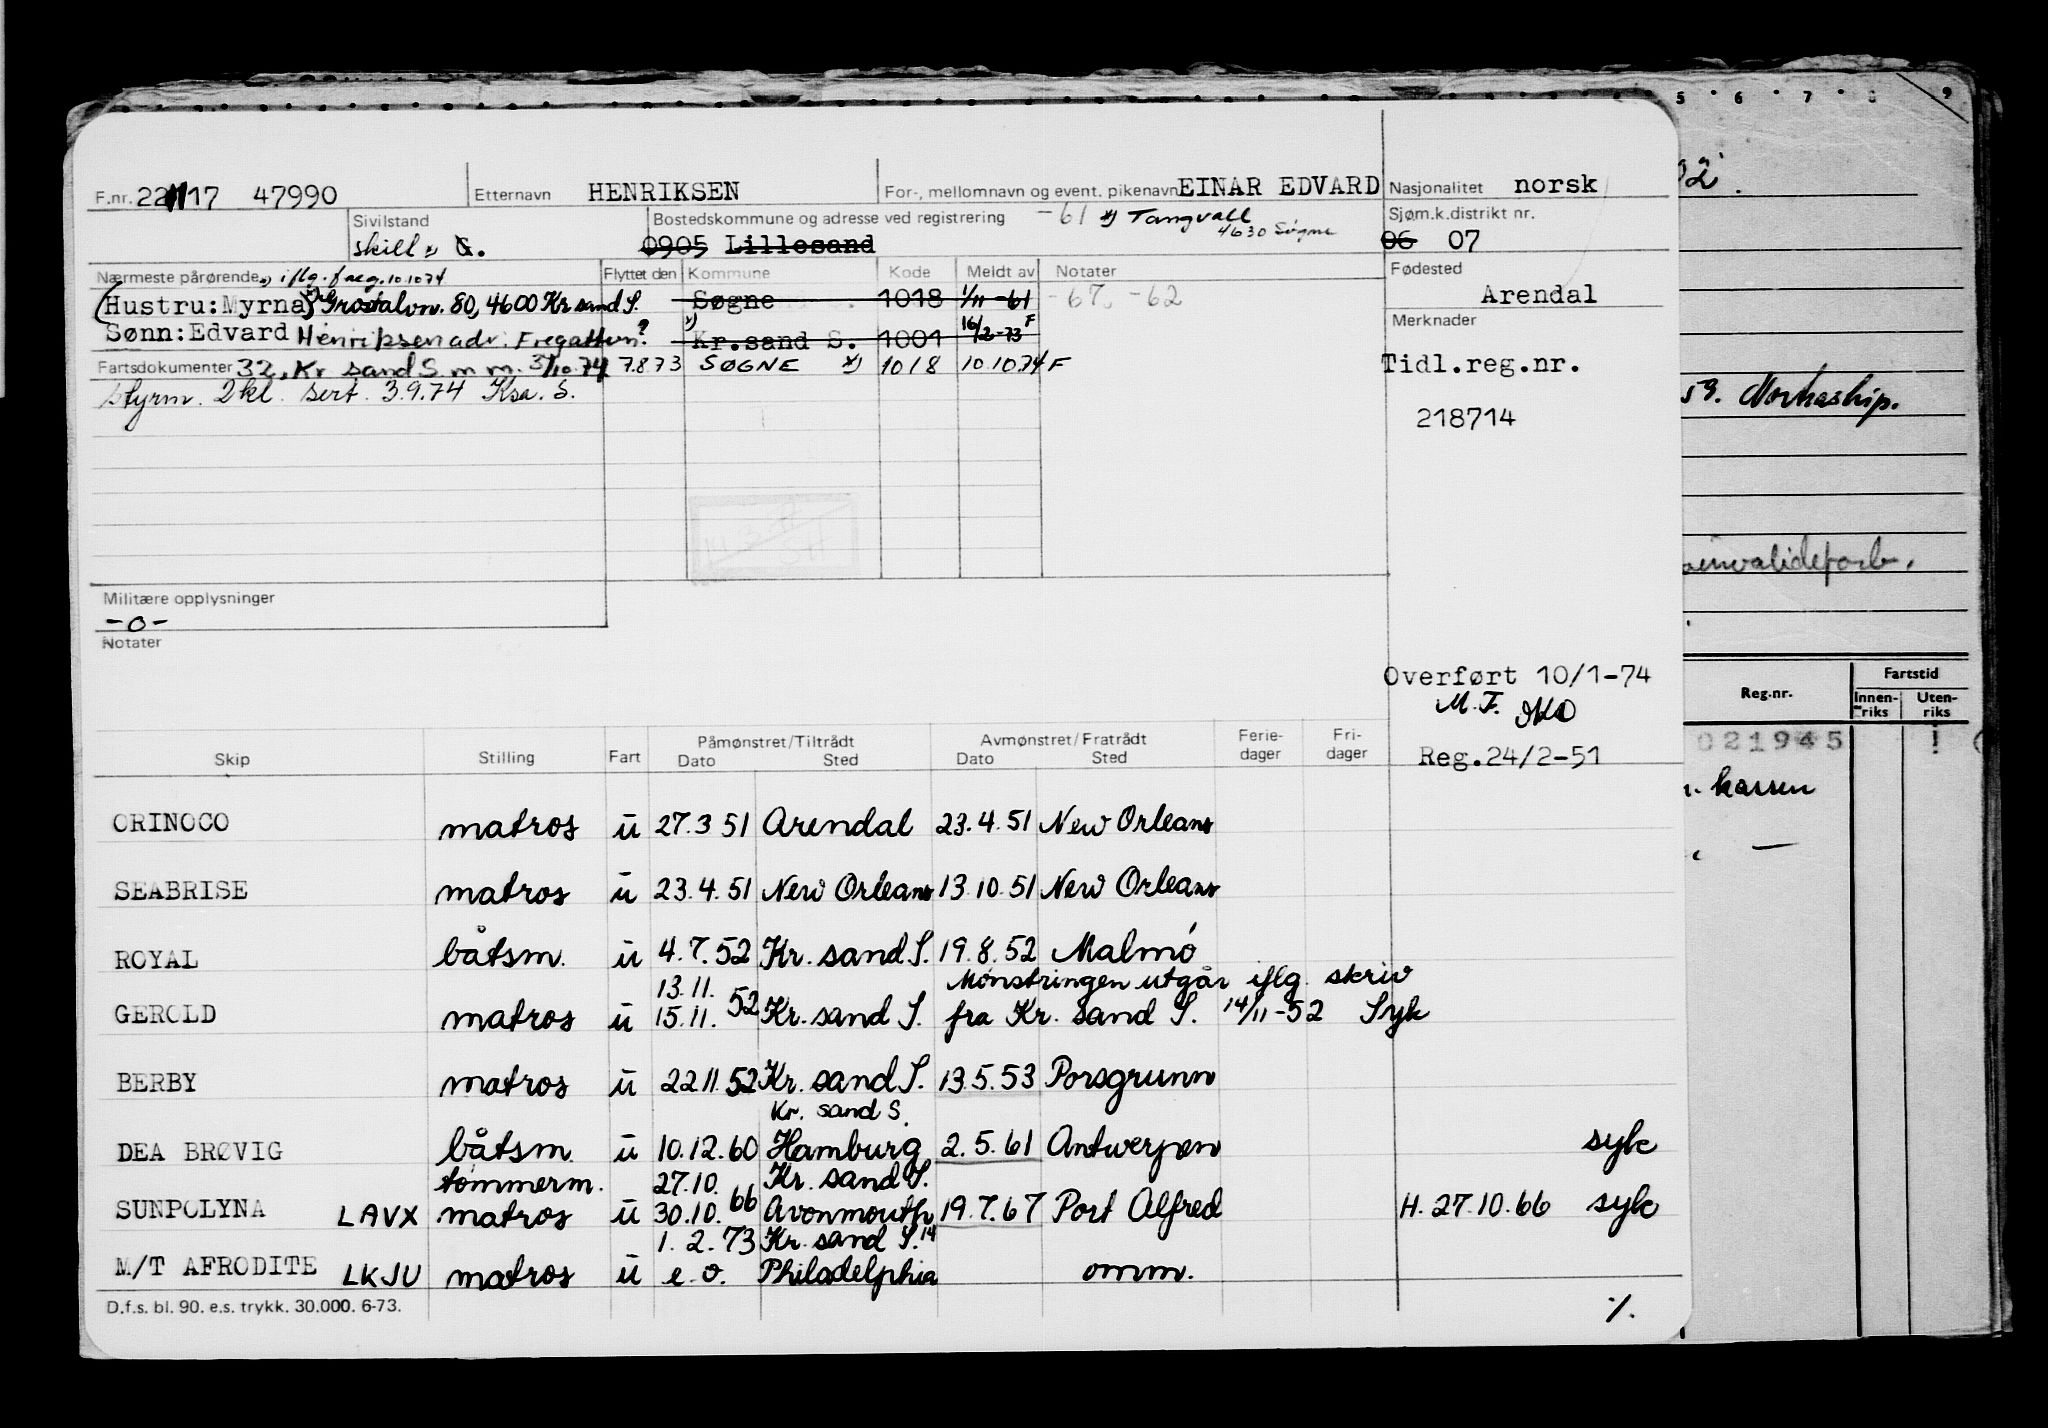 F.nr. 221117 47990 Etternavn HENRIKSEN For-, mellomnavn og event. pikenavn EINAR EDVARD Nasjonalitet norsk
Sivilstand skill *) G. Bostedskommune og adresse ved registrering -61 *) Tangvall 4630 Søgne Sjøm.k.distrikt nr.
0905 Lillesand 06 07
Nærmeste pårørende *) iflg. f aeg. 10.10.74 Flyttet den Kommune Kode Meldt av Notater Fødested
(Hustru: Myrna) 80, 4600 Kr sand S. Søgne 1018 1/11-61 -67, -62 Arendal
Sønn: Edvard Henriksen adr. Fregatten? *) Kr.sand S. 1001 16/2-73 F Merknader
Fartsdokumenter 32, Kr sand S m m. 31/10.74 7.8.73 SØGNE *) 1018 10.10.74 F Tidl.reg.nr.
styrm. 2kl. sert. 3.9.74 Ksa. S.
218714
Militære opplysninger
-0-
Notater
Overført 10/1-74
M.F.
Reg.24/2-51
Skip Stilling Fart Påmønstret/Tiltrådt Dato Sted Avmønstret/Fratrådt Dato Sted Ferie-dager Fri-dager
ORINOCO matros u 27.3 51 Arendal 23.4.51 New Orleans
SEABRISE matros u 23.4.51 New Orleans 13.10.51 New Orleans
ROYAL båtsm. u 4.7.52 Kr. sand S. 19.8.52 Malmö
13.11. Mønstringen utgår iflg. skriv
GEROLD matros u 15.11. 52 Kr. sand S. fra Kr. sand S. 14/11-52 Syk
BERBY matros u 22.11.52 Kr. sand S. 13.5.53 Porsgrunn
Kr. sand S.
DEA BRØVIG båtsm. u 10.12.60 Hamburg 2.5.61 Antwerpen syk
tømmerm. 27.10. Kr. sand S.
SUNPOLYNA LAVX matros u 30.10. 66 Avonmouth 19.7.67 Port Alfred H. 27.10.66 syk
1.2.73 Kr. sand S. 14
M/T AFRODITE LKJU matros u e.o. Philadelphia omm.
D.f.s. bl. 90. e.s. trykk. 30.000. 6-73. ./.
5 6 7 8 9
Norhaship.
Reg.nr. Fartstid
Innen-riks Uten-riks
021945